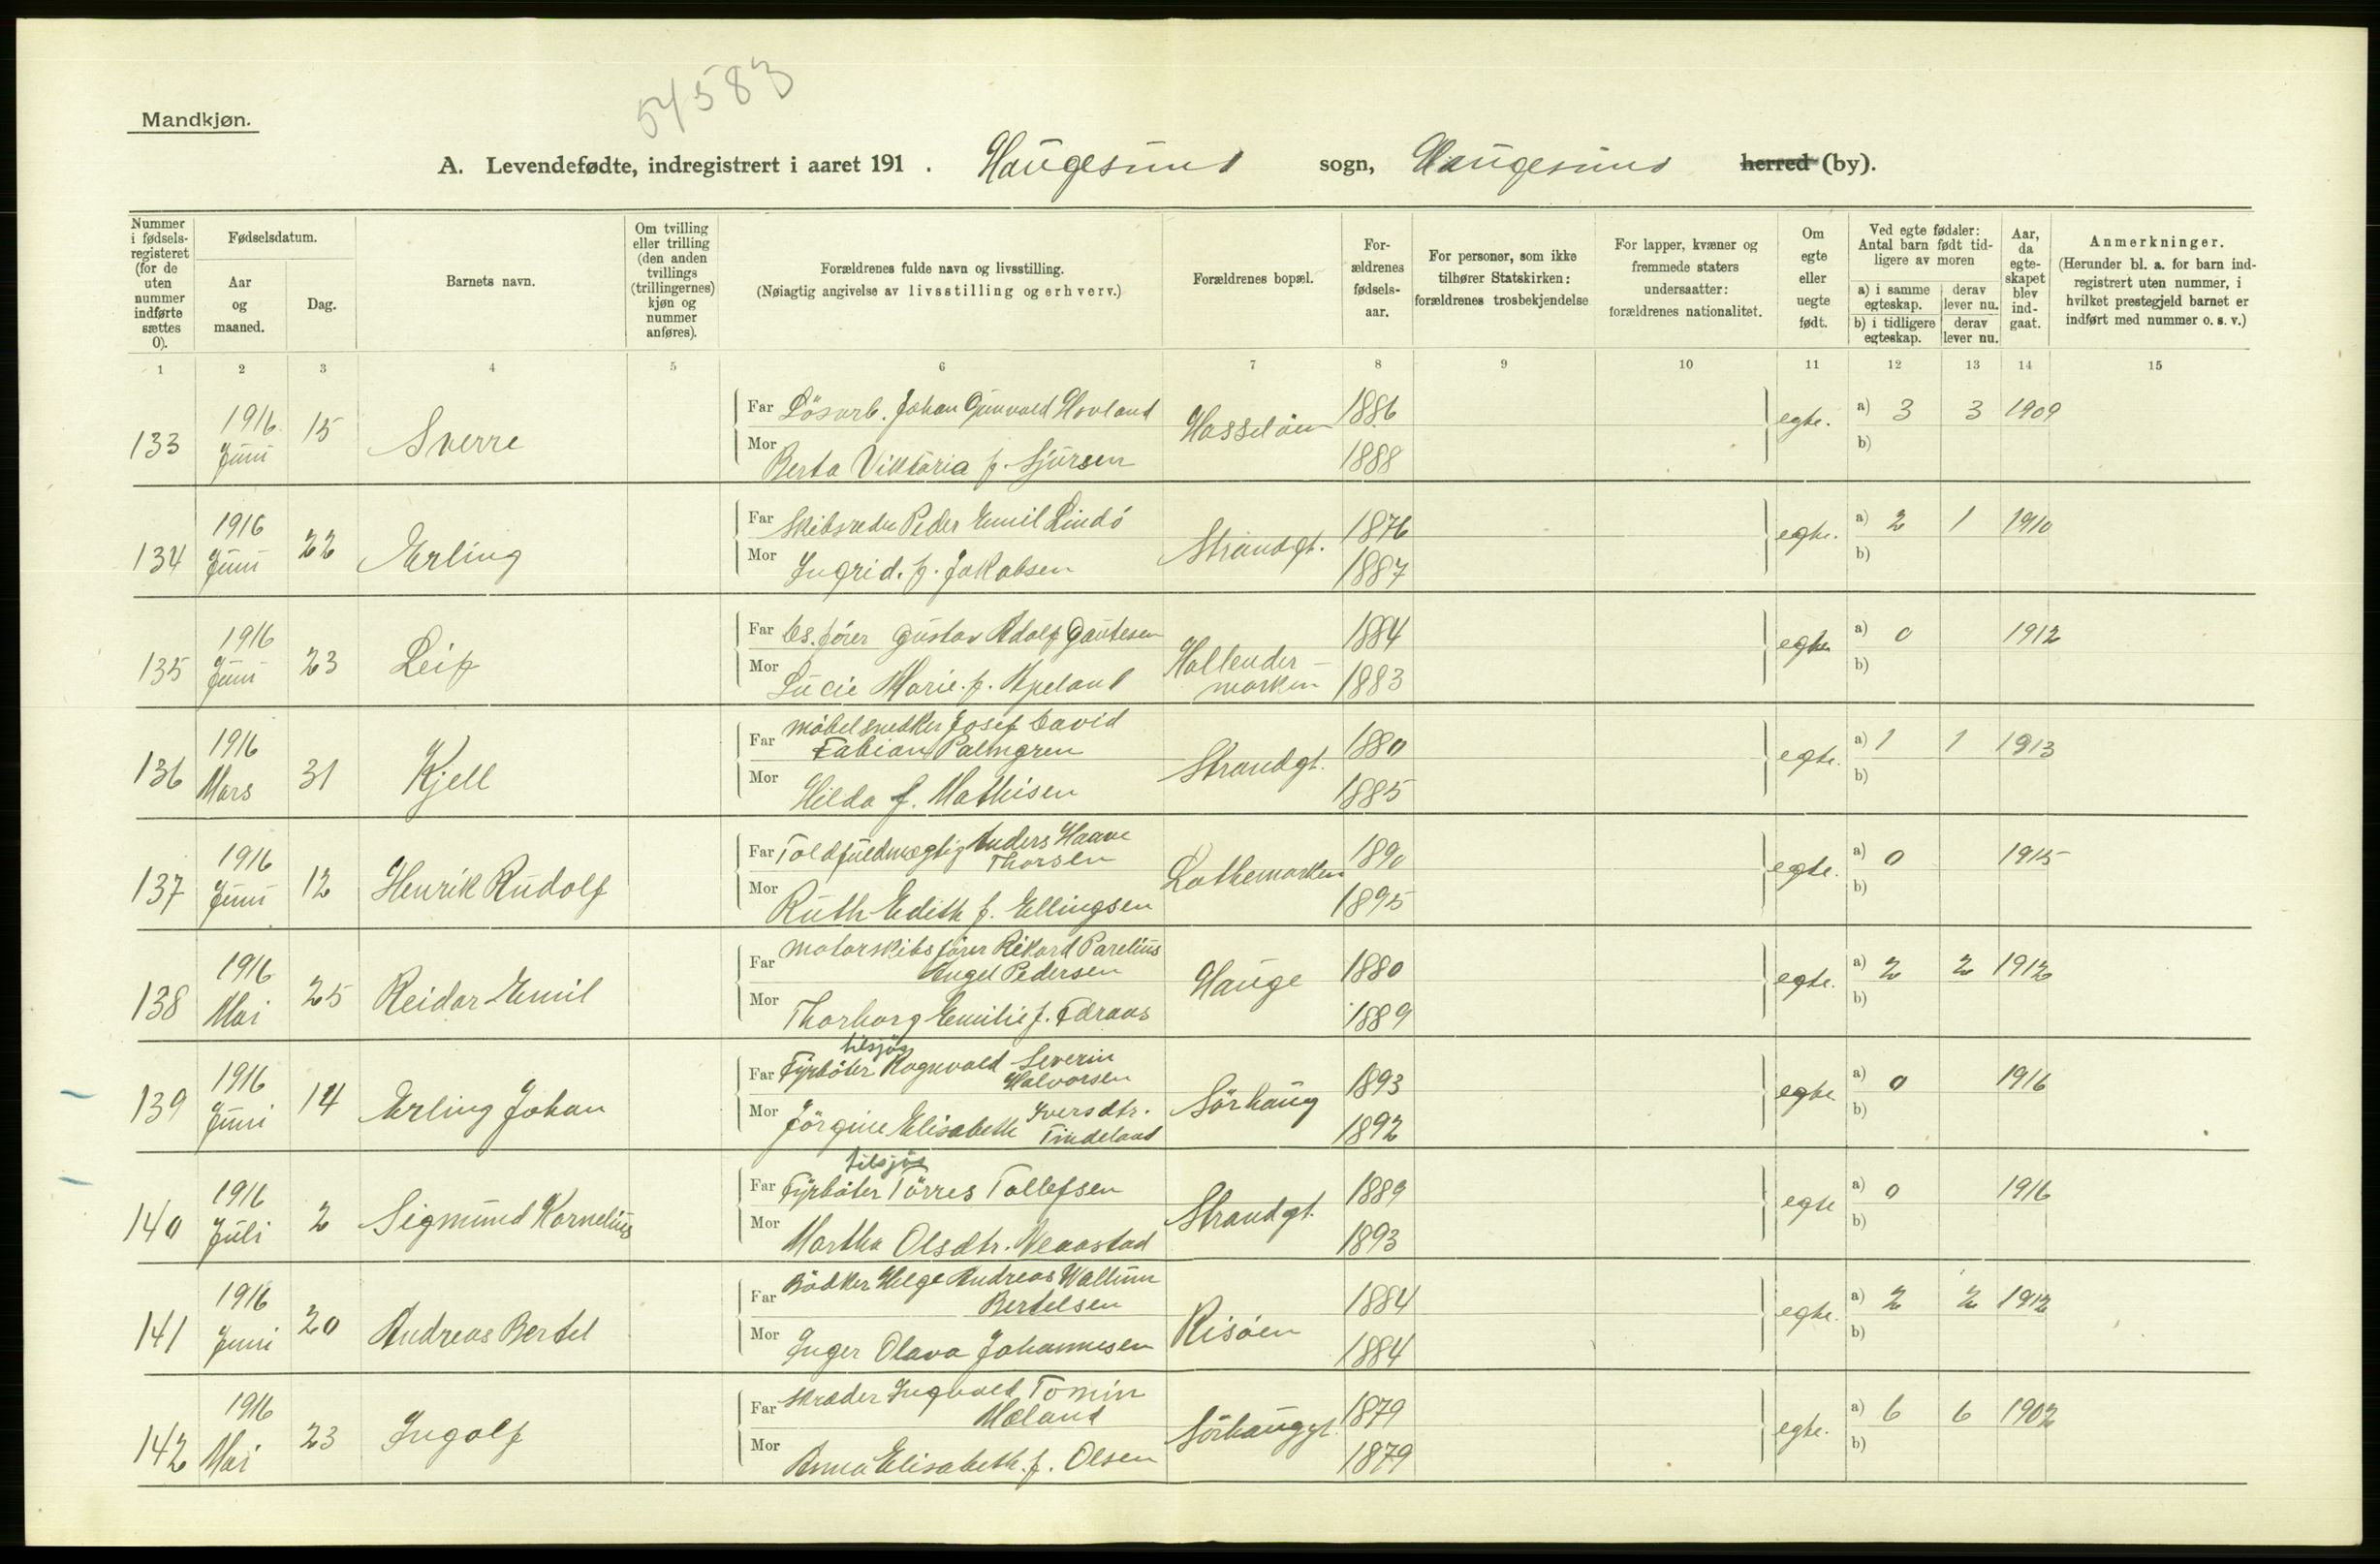 54583
Mandkjøn.
A. Levendefødte, indregistrert i aaret 191 . Haugesund sogn, Haugesund herred (by).
Nummer i fødsels-registeret (for de uten nummer indførte sættes 0).
Fødselsdatum.
Aar og maaned.
Dag.
Barnets navn.
Om tvilling eller trilling (den anden tvillings (trillingernes) kjøn og nummer anføres).
Forældrenes fulde navn og livsstilling.
(Nøiagtig angivelse av livsstilling og erhverv.)
Forældrenes bopæl.
For-ældrenes fødsels-aar.
For personer, som ikke tilhører Statskirken: forældrenes trosbekjendelse
For lapper, kvæner og fremmede staters undersaatter: forældrenes nationalitet.
Om egte eller uegte født.
Ved egte fødsler: Antal barn født tid-ligere av moren
a) i samme egteskap. derav lever nu.
b) i tidligere egteskap. derav lever nu.
Aar, da egte-skapet blev ind-gaat.
Anmerkninger.
(Herunder bl. a. for barn ind-registrert uten nummer, i hvilket prestegjeld barnet er indført med nummer o. s. v.)
1 2 3 4 5 6 7 8 9 10 11 12 13 14 15
133 1916 Juni 15 Sverre
Far Lösarb. Johan Gunvald Hovland Hasseløen 1886 egte. a) 3 3 1909
Mor Berta Viktoria f. Sjursen 1888 b)
134 1916 Juni 22 Erling
Far Skibsreder Peder Emil Lindö Strandgt. 1876 egte. a) 2 1 1910
Mor Ingrid. f. Jakobsen 1887 b)
135 1916 Juni 23 Leif
Far Gustav Adolf Gautesen Hollender-marken 1884 egte a) 0 1912
Mor Lucie Marie. f. Apeland 1883 b)
136 1916 Mars 31 Kjell
Far Möbelsnedker Josef David
Fabian Palmgren Strandgt. 1880 egte. a) 1 1 1913
Mor Hilda f. Mathisen 1885 b)
137 1916 Juni 12 Henrik Rudolf
Far Toldfuldmægtig Anders Haave
Thorsen Lothemarken 1890 egte. a) 0 1915
Mor Ruth Edith f. Ellingsen 1895 b)
138 1916 Mai 25 Reidar Emil
Far Motorskibsfører Rikard Parelius
Angel Pedersen Hauge 1880 egte. a) 2 2 1912
Mor Thorborg Emilie f. 1889 b)
tilsjøs
139 1916 Juni 14 Erling Johan
Far Fyrböter Ragnvald Severin
Halvorsen Sörhaug 1893 egte a) 0 1916
Mor Jörgine Elisabeth Iversdtr.
Tindeland 1892 b)
tilsjøs
140 1916 Juli 2 Sigmund Kornelius
Far Fyrböter Törres Tollefsen Strandgt. 1889 egte a) 0 1916
Mor Martha Olsdtr. Neaastad 1893 b)
141 1916 Juni 20 Andreas Bertel
Far Bödker Helge Andreas Wallum
Bertelsen Risöen 1884 egte. a) 2 2 1912
Mor Inger Olava Johannesen 1884 b)
142 1916 Mai 23 Ingolf
Far Skræder Ingvald Tomin
Mæland Sörhauggt. 1879 egte. a) 6 6 1902
Mor Anna Elisabeth. f. Olsen 1879 b)